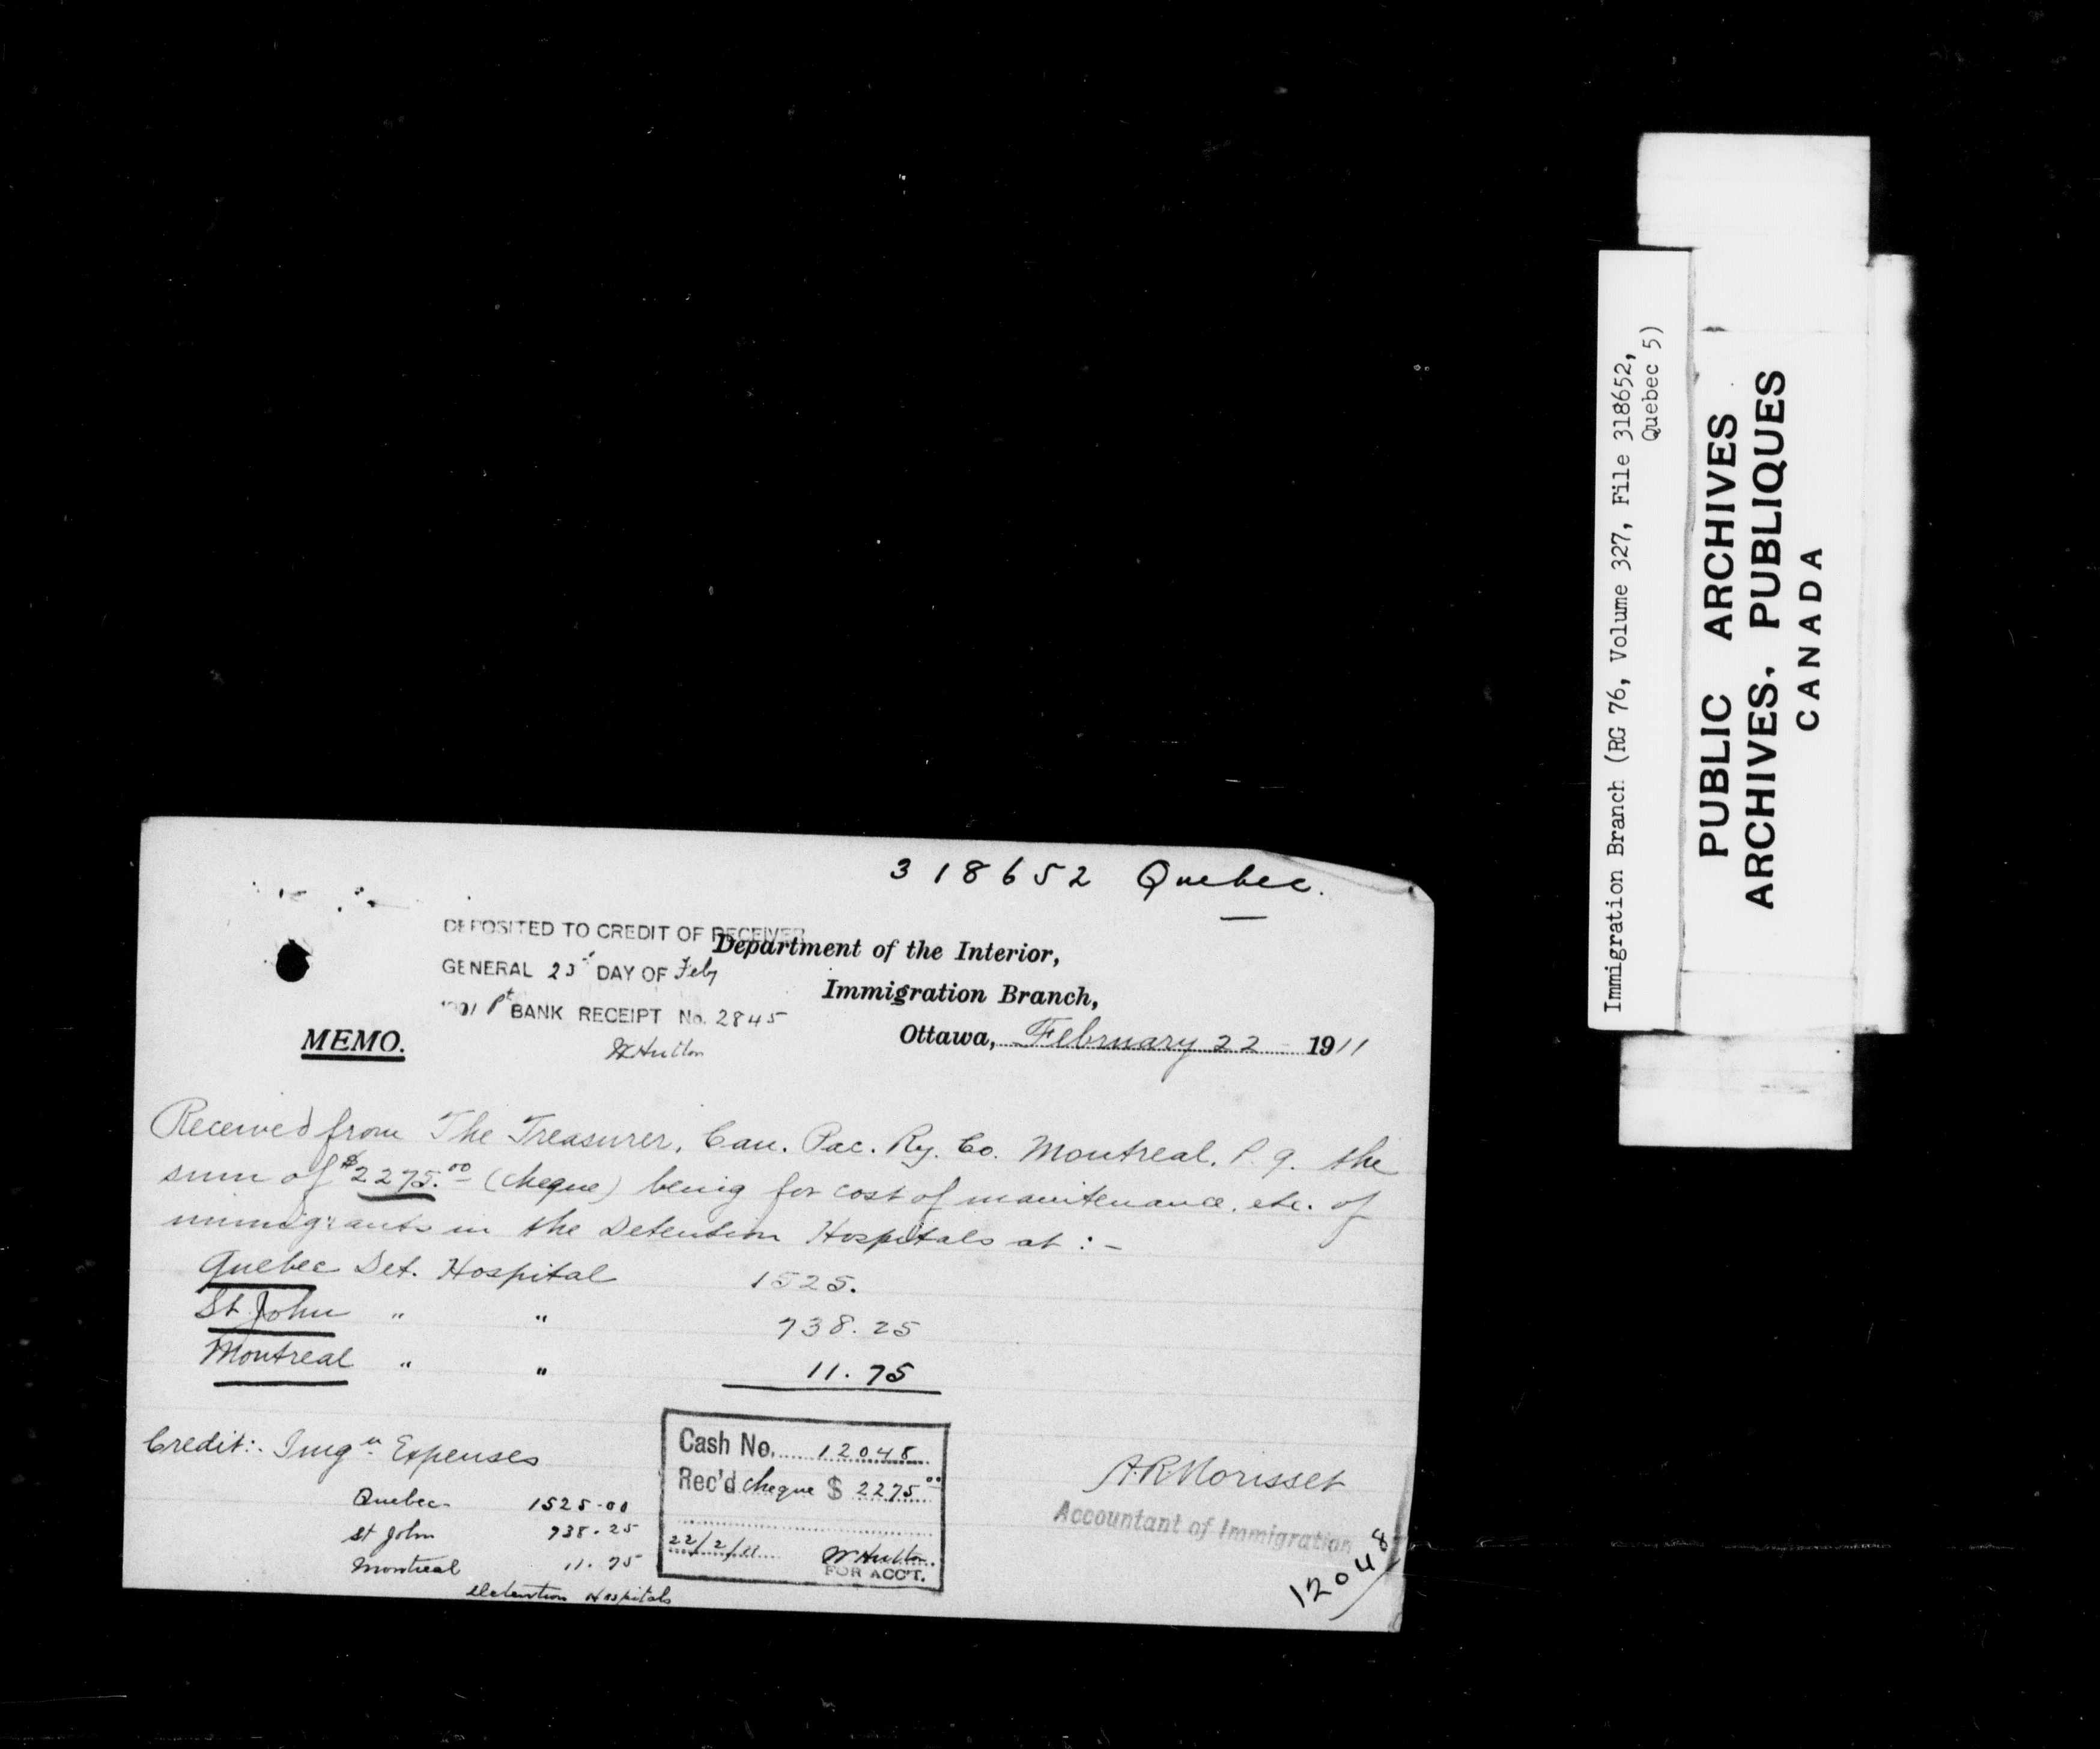 318652 Quebec.
DEPOSITED TO CREDIT OF RECEIVER
GENERAL 23 DAY OF Feby
BANK RECEIPT No. 2845
W Hutton
Department of the Interior,
Immigration Branch,
MEMO.
Ottawa, February 22 1911
Received from The Treasurer, Can. Pac. Ry. Co. Montreal, P. Q. the
sum of $2275.00 (cheque) being for cost of maintenance, etc. of
immigrants in the Detention Hospitals at :-
Quebec Det. Hospital 1525.
St John " " 738.25
Montreal " " 11.75
Credit:- Imgn Expenses
Quebec 1525.00
St John 738.25
Montreal 11.75
Detention Hospitals
Cash No. 12048
Rec'd cheque $ 2275.00
22/2/11 W Hutton
FOR ACC'T.
A.R. Morisset
Accountant of Immigration
12048
Immigration Branch (RG 76, Volume 327, File 318652,
Quebec 5)
PUBLIC ARCHIVES
ARCHIVES. PUBLIQUES
CANADA